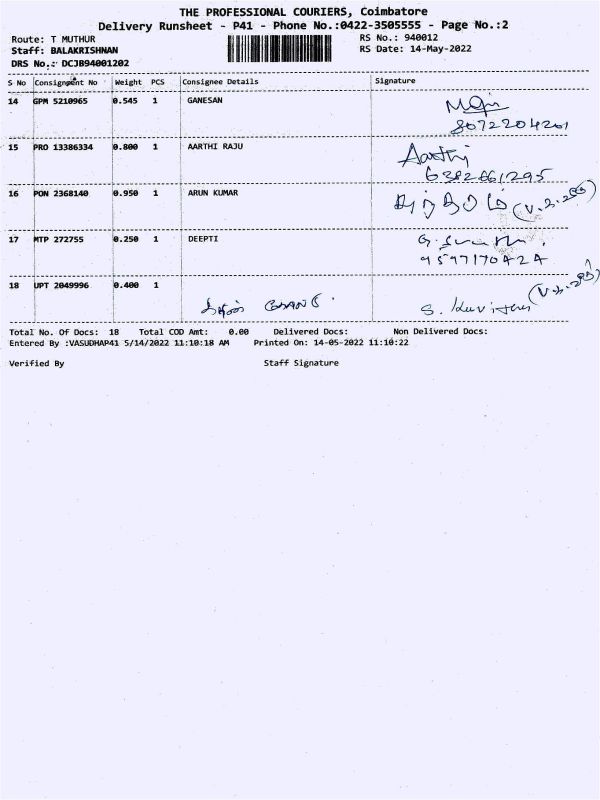 THE PROFESSIONAL COURIERS, Coimbatore
Delivery Runsheet - P41 - Phone No.:0422-3505555 - Page No.:2
Route: T MUTHUR
RS No.: 940012
Staff: BALAKRISHNAN
RS Date: 14-May-2022
DRS No.: DCJB94001202
S No Consignment No Weight PCS Consignee Details Signature
14 GPM 5210965 0.545 1 GANESAN
8072204201
15 PRO 13386334 0.800 1 AARTHI RAJU Aarthi
6382661295
16 PON 2368140 0.950 1 ARUN KUMAR
17 MTP 272755 0.250 1 DEEPTI
9597170424
18 UPT 2049996 0.400 1
Total No. Of Docs: 18 Total COD Amt: 0.00 Delivered Docs: Non Delivered Docs:
Entered By :VASUDHAP41 5/14/2022 11:10:18 AM Printed On: 14-05-2022 11:10:22
Verified By Staff Signature